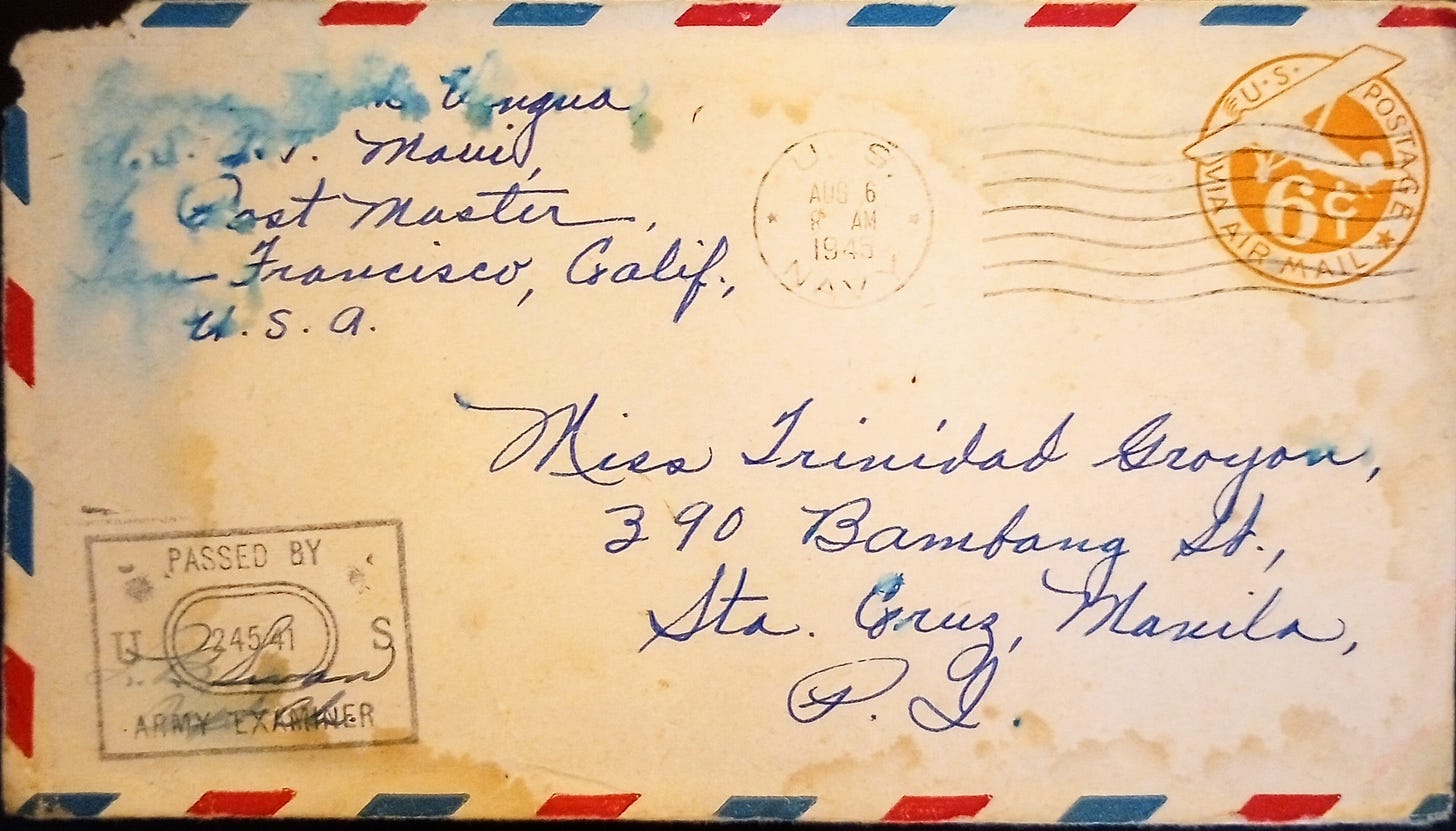 Ungua
U.S.A.T. Maui,
Post Master,
San Francisco, Calif.,
U.S.A.
U. S.
AUG 6
8 AM
1945
NAVY
U.S. POSTAGE
6¢
VIA AIR MAIL
Miss Trinidad Groyon,
390 Bambang St.,
Sta. Cruz, Manila,
P.I.
PASSED BY
U 224541 S
ARMY EXAMINER